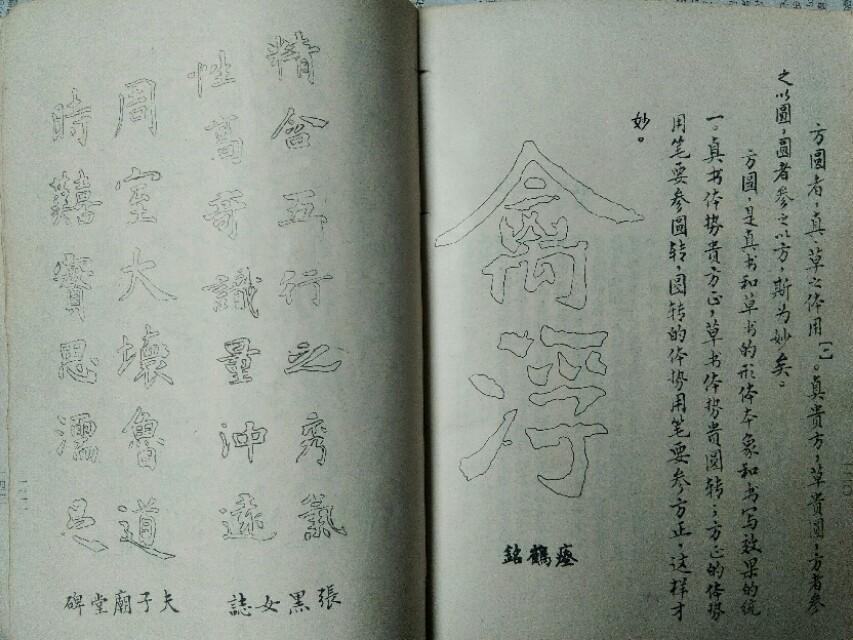 方圆者，真、草之体用〔一〕。真贵方，草贵圆，方者参
之以圆，圆者参之以方，斯为妙矣。
方圆，是真书和草书的形体本象和书写效果的统
一。真书体势贵方正，草书体势贵圆转；方正的体势
用笔要参圆转，圆转的体势用笔要参方正，这样才
妙。
禽浮
瘞鶴銘
精含五行之秀氣
性高奇識量沖遠
張黑女誌
周室大壞魯道
時囏實思濡足
夫子廟堂碑